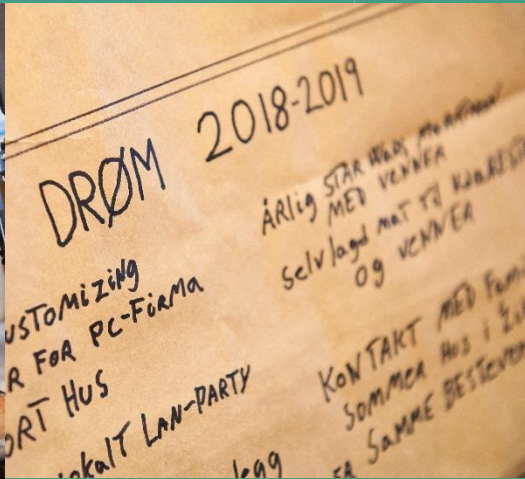 DRØM 2018-2019
USTOMiZiNG
R FOR PC-FiRMA
ORT HUS
okalT LAN-PARTY
legg
ÅRlig STAR WARS
MED VENNER
selvlagd mat til
og VENNER
KONTAKT MED FAMi
SOMMER HUS i
SAMME BESTEVEN